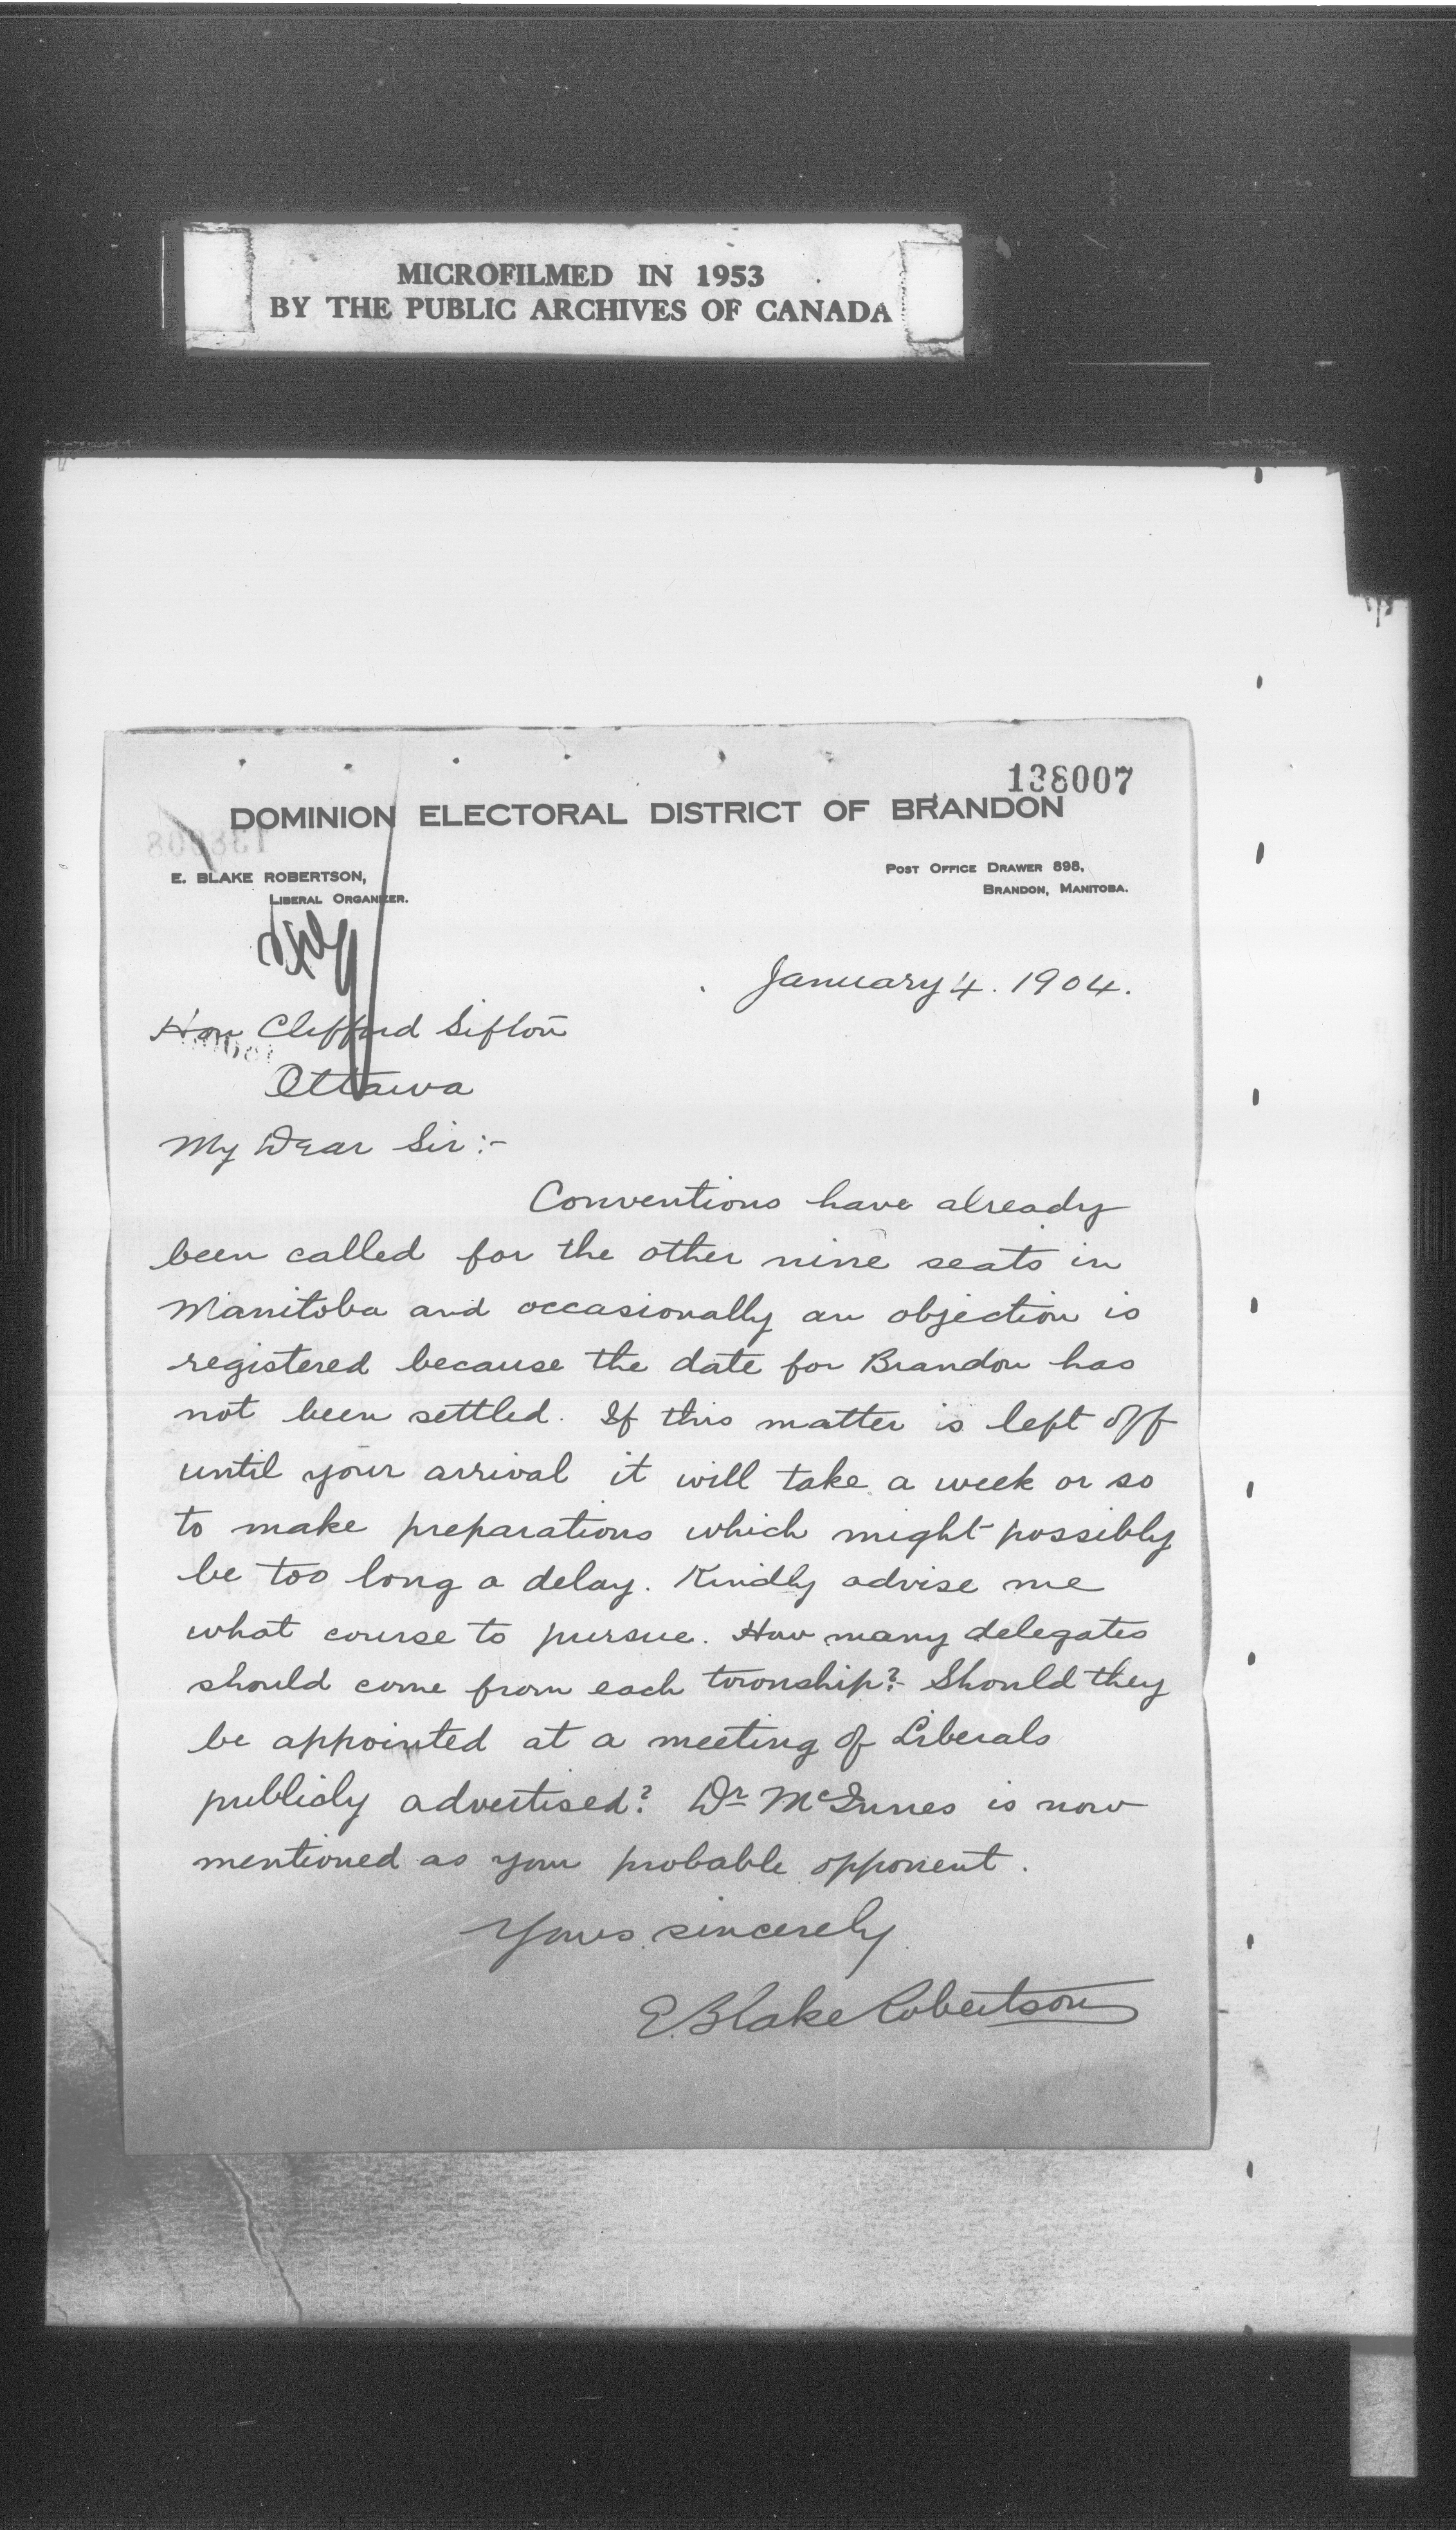 MICROFILMED IN 1953
BY THE PUBLIC ARCHIVES OF CANADA
138007
DOMINION ELECTORAL DISTRICT OF BRANDON
E. BLAKE ROBERTSON,
LIBERAL ORGANIZER.
POST OFFICE DRAWER 898,
BRANDON, MANITOBA.
January 4. 1904.
Hon Clifford Sifton
Ottawa
My Dear Sir:-
Conventions have already
been called for the other nine seats in
Manitoba and occasionally an objection is
registered because the date for Brandon has
not been settled. If this matter is left off
until your arrival it will take a week or so
to make preparations which might possibly
be too long a delay. Kindly advise me
what course to pursue. How many delegates
should come from each township? Should they
be appointed at a meeting of Liberals
publicly advertised? Dr McInnes is now
mentioned as your probable opponent.
Yours sincerely
E. Blake Robertson